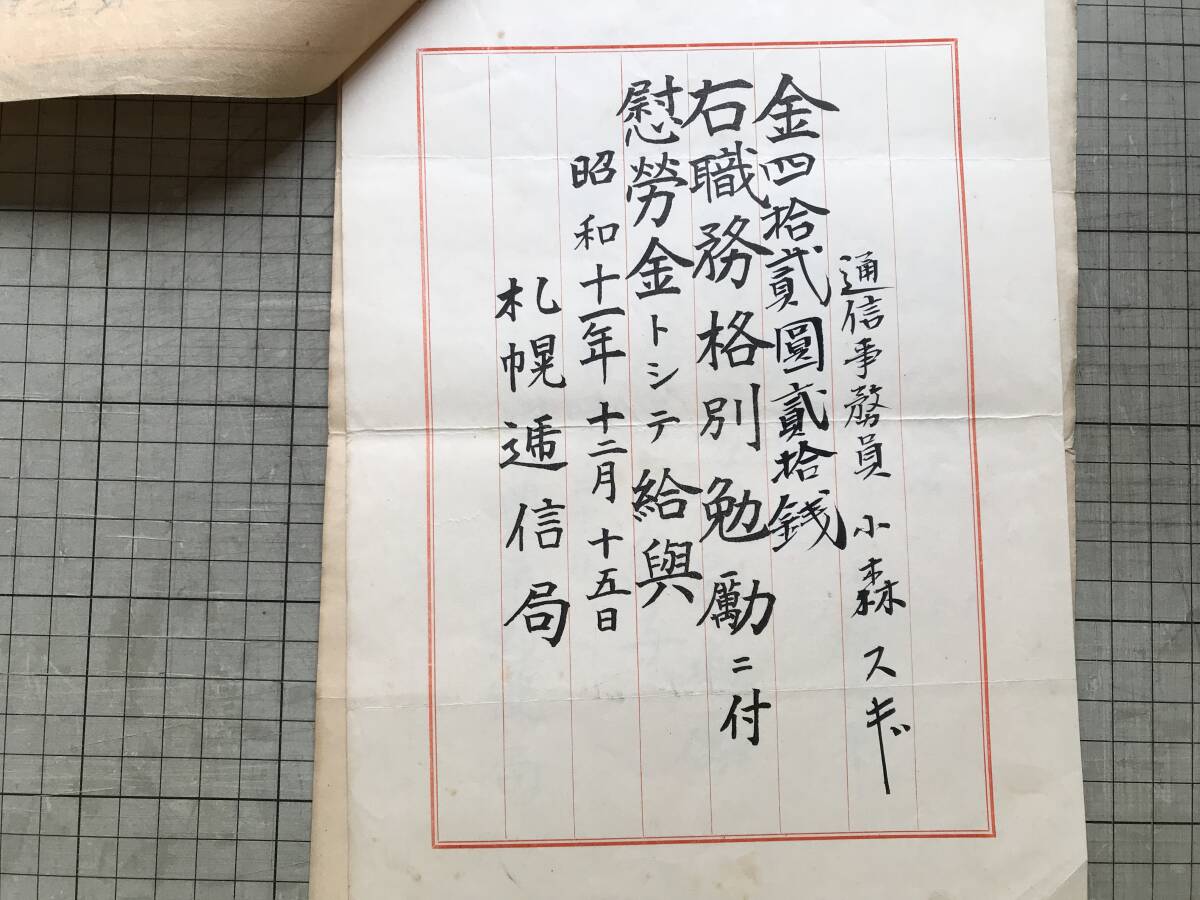 通信事務員 小森スギ
金四拾貳圓貳拾銭
右職務格別勉勵ニ付
慰勞金トシテ給與
昭和十一年十二月十五日
札幌遞信局